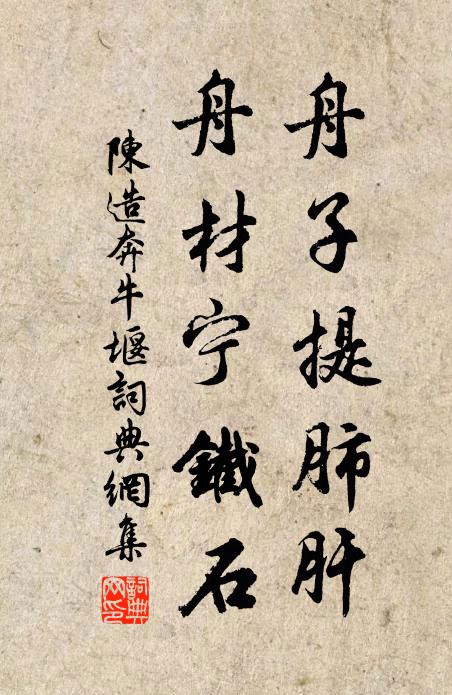 舟子提肺肝
舟材宁鐵石
陳造奔牛堰詞典網集
詞典網印